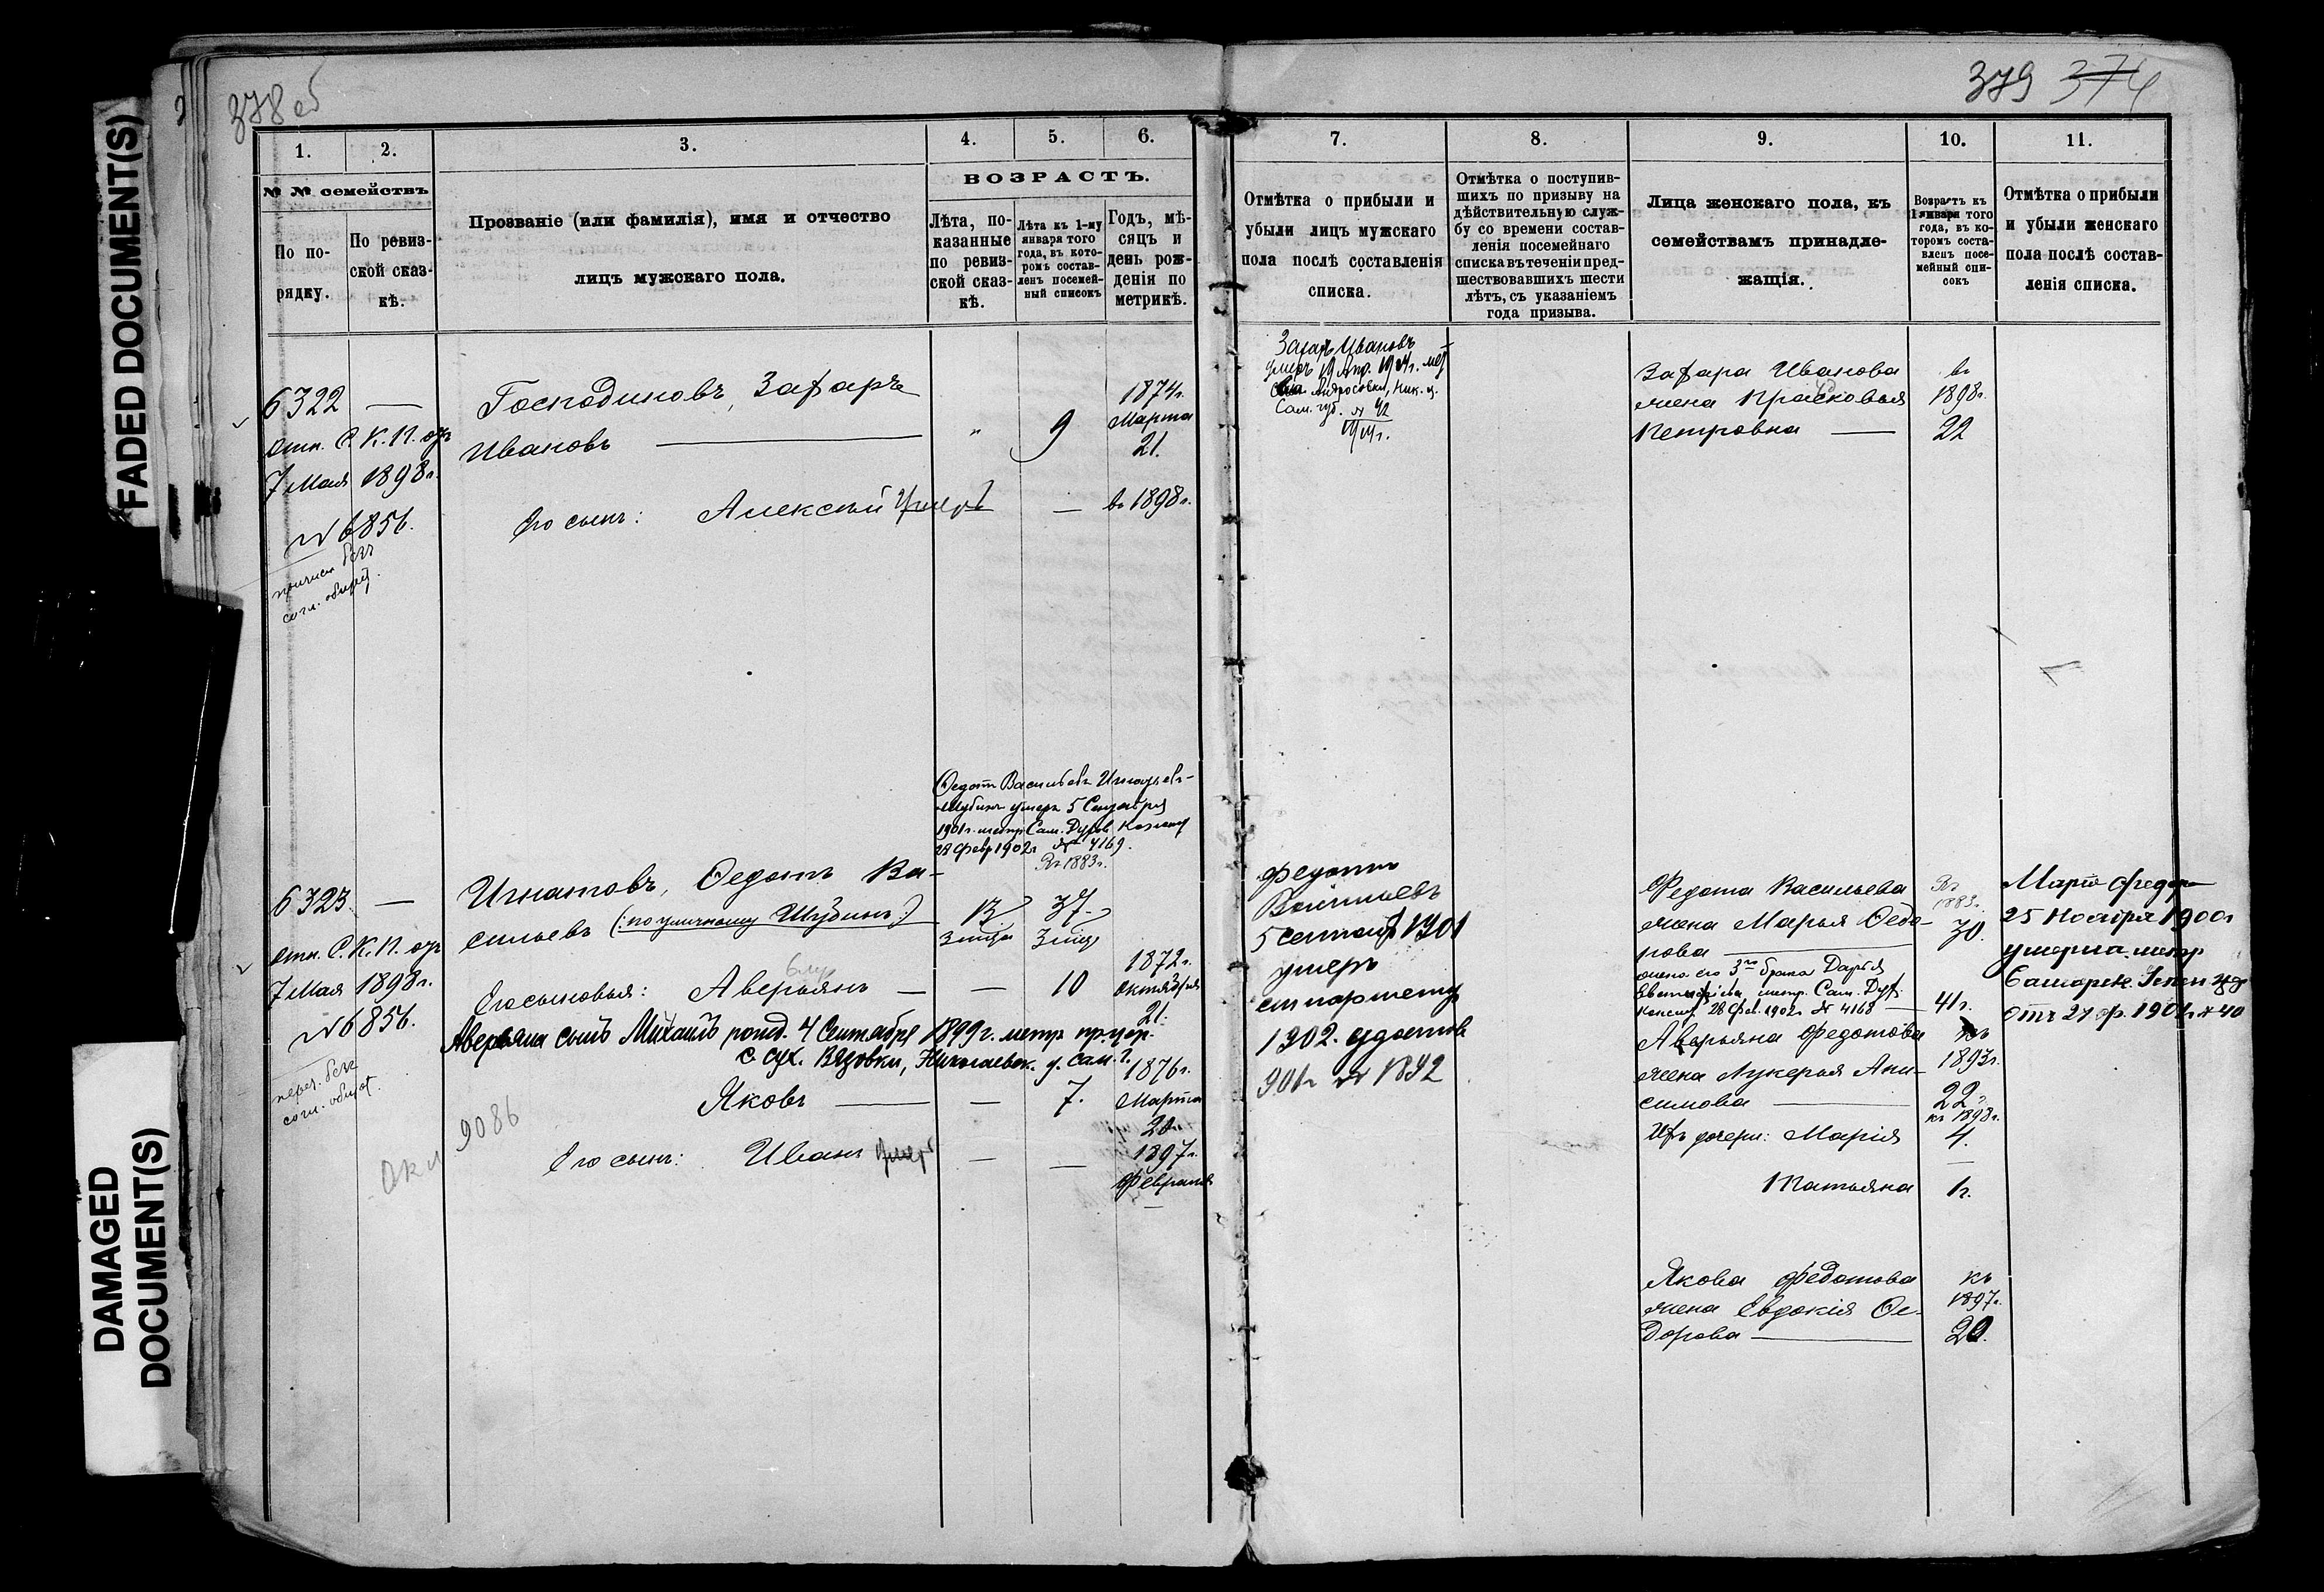 FADED DOCUMENT(S)
DAMAGED
DOCUMENT(S)
378 об
379 374
1.
2.
3.
4.
5.
6.
№ № семействъ
По по-
рядку.
По ревиз-
ской сказ-
кѣ.
Прозваніе (или фамилія), имя и отчество
лицъ мужскаго пола.
ВОЗРАСТЪ.
Лѣта, по-
казанные
по ревиз-
ской сказ-
кѣ.
Лѣта къ 1-му
января того
года, въ кото-
ромъ состав-
ленъ посемей-
ный списокъ
Годъ, мѣ-
сяцъ и
день рож-
денія по
метрикѣ.
6322 —
отн. С. К. П. отъ
7 Мая 1898 г.
№ 6856.
причисл. безъ
согл. общест.
Господиновъ, Захаръ
Ивановъ
„
9
1874 г.
Марта
21.
Его сынъ: Алексѣй умеръ
—
въ 1898 г.
Федотъ Васильевъ Игнатьевъ-
Шубинъ умеръ 5 Сентября
1901 г. метр. Сам. Духов. Консис.
28 Февр 1902 г. № 4169.
Въ 1883 г.
6323 —
отн. С. К. П. отъ
7 Мая 1898 г.
№ 6856.
переч.. безъ
согл. общест.
9086
Игнатовъ, Ѳедотъ Ва-
сильевъ (: по уличному Шубинъ :)
13
37
Его сыновья: Аверьянъ — — 10
1872 г.
Октября
21.
Аверьяна сынъ Михаилъ рожд. 4 Сентября 1899 г. метр. пр. цер.
с. Сух. Вязовки, Николаевск. у. Сам. г.
Яковъ — — 7.
1876 г.
Марта
20
Его сынъ: Иванъ умеръ — —
1897 г.
Февраля
7.
8.
9.
10.
11.
Отмѣтка о прибыли и
убыли лицъ мужскаго
пола послѣ составленія
списка.
Отмѣтка о поступив-
шихъ по призыву на
дѣйствительную служ-
бу со времени состав-
ленія посемейнаго
списка въ теченіи пред-
шествовавшихъ шести
лѣтъ, съ указаніемъ
года призыва.
Лица женскаго пола, къ
семействамъ принадле-
жащія.
Возрастъ къ
1 января того
года, въ ко-
торомъ соста-
вленъ посе-
мейный спи-
сокъ
Отмѣтка о прибыли
и убыли женскаго
пола послѣ состав-
ленія списка.
Захаръ Ивановъ
умеръ 19 Апр. 1904 г.
Андросовки, Ник. у.
Сам. губ. № 42
Захара Иванова
жена Прасковья
Петровна
въ
1898 г.
22
Федотъ
Васильевъ
5 сентяб 1901
умеръ
1902.
901 г № 1892
Федота Васильева
жена Марья Ѳедо-
рова
Въ
1883 г.
30.
жена его 3го брака Дарья
метр. Сам. Дух.
Консис. 28 Фев. 1902 г. № 4168 —
41 г.
Аверьяна Федотова
жена Лукерья Ани-
симова
1893 г.
22
къ 1898 г.
Ихъ дочери: Марія
4.
Татьяна
1 г.
Якова Федотова
жена Евдокія Ѳе-
дорова
къ
1897 г.
20.
25 Ноября 1900 г
умерла метр
отъ 27 ф. 1901 г № 40